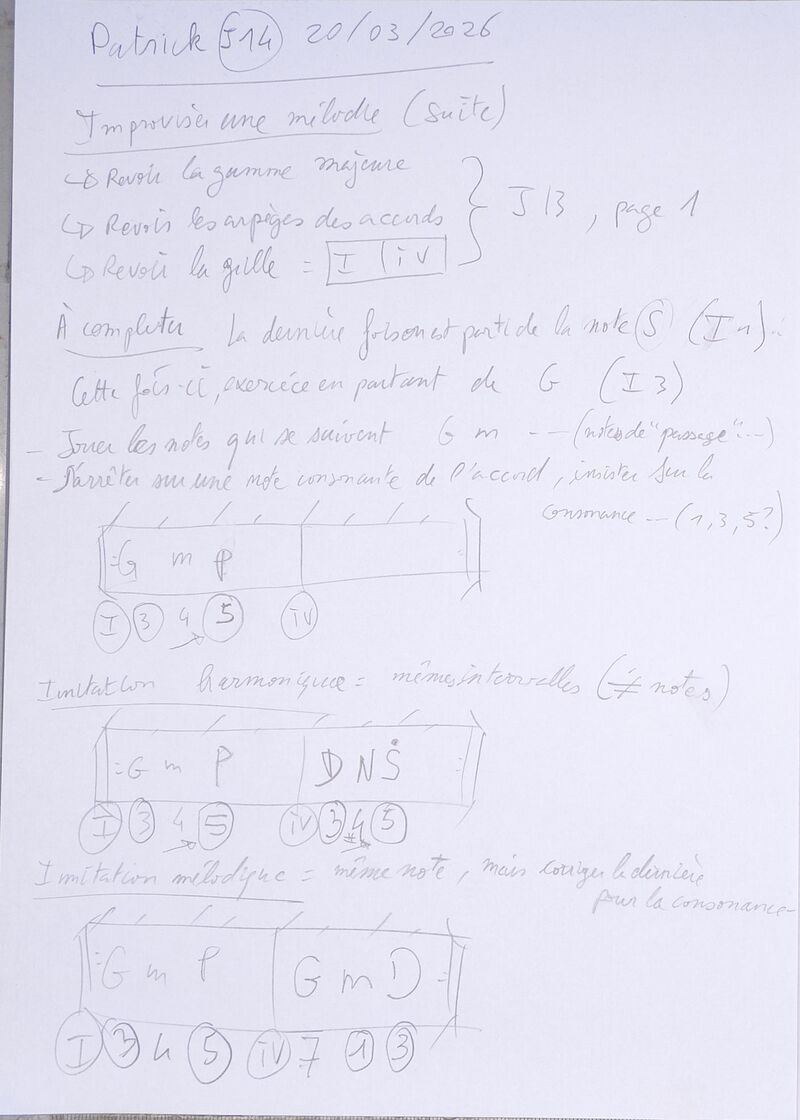 Patrick J14 20/03/2026
Improviser une mélodie (suite)
↳ Revoir la gamme majeure
↳ Revoir les arpèges des accords } J13, page 1
↳ Revoir la grille = I | iv
À compléter La dernière fois on est parti de la note S (I 1).
Cette fois-ci, exercice en partant de G (I 3)
- Jouer les notes qui se suivent G m -- (notes de "passage"...)
- S'arrêter sur une note consonante de l'accord, insister sur la
consonance -- (1, 3, 5?)
G m P
I 3 4 5 iv
Imitation harmonique = mêmes intervalles (≠ notes)
G m P D N Ṡ
I 3 4 5 iv 3 #4 5
Imitation mélodique = même note, mais corriger la dernière
pour la consonance -
G m P G m D
I 3 4 5 iv 7 1 3